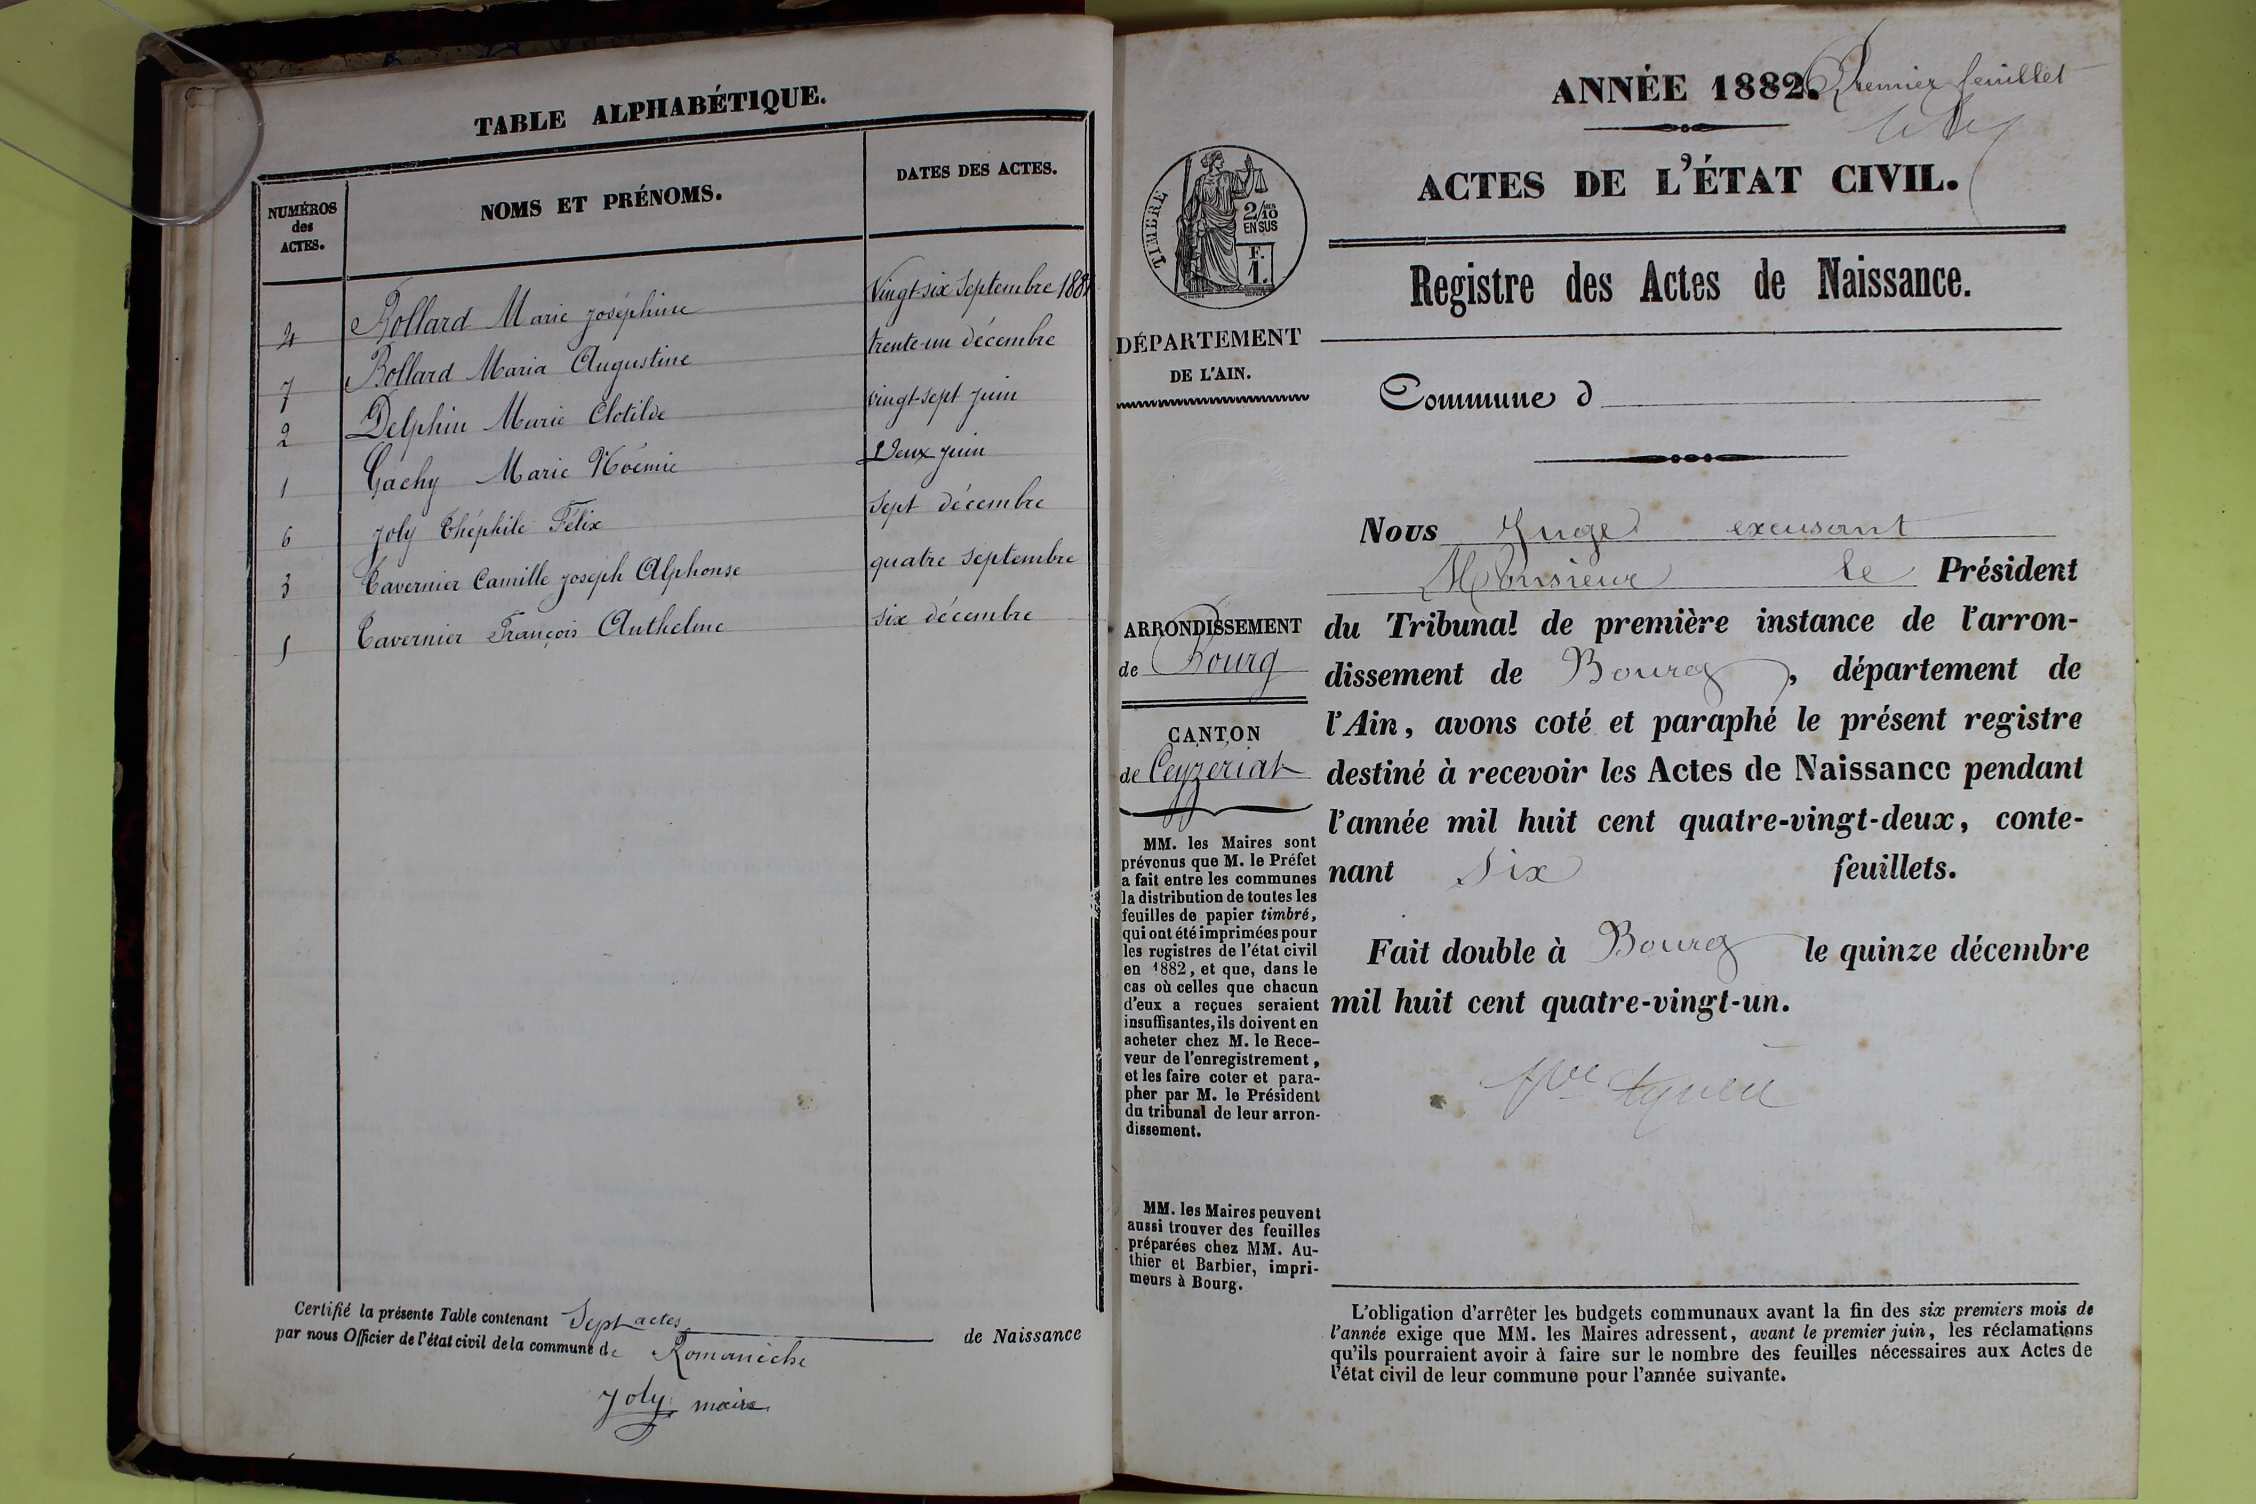 TABLE ALPHABÉTIQUE.
NUMÉROS des ACTES.
NOMS ET PRÉNOMS.
DATES DES ACTES.
4 Bollard Marie joséphine Vingt-six Septembre 1881
7 Bollard Maria Augustine trente-un décembre
2 Delphin Marie Clotilde vingt-sept juin
1 Gachy Marie Noémie Deux juin
6 Joly Théphile Félix sept décembre
3 Tavernier Camille joseph Alphonse quatre septembre
5 Tavernier François Anthelme six décembre
Certifié la présente Table contenant Sept actes de Naissance
par nous Officier de l'état civil de la commune de Romanèche
Joly maire
ANNÉE 1882. Premier feuillet
ACTES DE L'ÉTAT CIVIL.
TIMBRE
2/10 EN SUS
F. 1.
Registre des Actes de Naissance.
DÉPARTEMENT
DE L'AIN.
Commune d
Nous Juge excusant
Monsieur le Président
du Tribunal de première instance de l'arron-
dissement de Bourg, département de
l'Ain, avons coté et paraphé le présent registre
destiné à recevoir les Actes de Naissance pendant
l'année mil huit cent quatre-vingt-deux, conte-
nant six feuillets.
Fait double à Bourg le quinze décembre
mil huit cent quatre-vingt-un.
ARRONDISSEMENT
de Bourg
CANTON
de Ceyzeriat
MM. les Maires sont
prévenus que M. le Préfet
a fait entre les communes
la distribution de toutes les
feuilles de papier timbré,
qui ont été imprimées pour
les registres de l'état civil
en 1882, et que, dans le
cas où celles que chacun
d'eux a reçues seraient
insuffisantes, ils doivent en
acheter chez M. le Rece-
veur de l'enregistrement,
et les faire coter et para-
pher par M. le Président
du tribunal de leur arron-
dissement.
MM. les Maires peuvent
aussi trouver des feuilles
préparées chez MM. Au-
thier et Barbier, impri-
meurs à Bourg.
L'obligation d'arrêter les budgets communaux avant la fin des six premiers mois de
l'année exige que MM. les Maires adressent, avant le premier juin, les réclamations
qu'ils pourraient avoir à faire sur le nombre des feuilles nécessaires aux Actes de
l'état civil de leur commune pour l'année suivante.